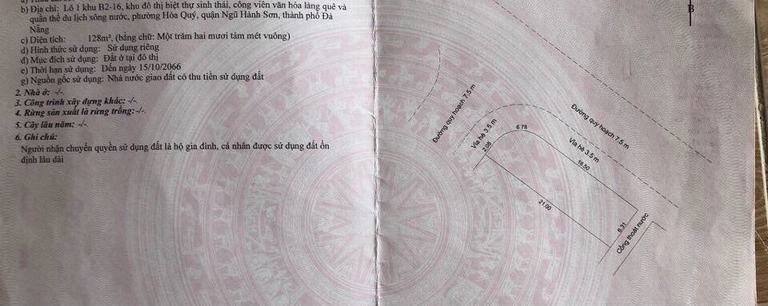 b) Địa chỉ: Lô 1 khu B2-16, khu đô thị biệt thự sinh thái, công viên văn hóa làng quê và
quần thể du lịch sông nước, phường Hòa Quý, quận Ngũ Hành Sơn, thành phố Đà
Nẵng
c) Diện tích: 128m², (bằng chữ: Một trăm hai mươi tám mét vuông)
d) Hình thức sử dụng: Sử dụng riêng
đ) Mục đích sử dụng: Đất ở tại đô thị
e) Thời hạn sử dụng: Đến ngày 15/10/2066
g) Nguồn gốc sử dụng: Nhà nước giao đất có thu tiền sử dụng đất
2. Nhà ở: -/-.
3. Công trình xây dựng khác: -/-.
4. Rừng sản xuất là rừng trồng: -/-.
5. Cây lâu năm: -/-.
6. Ghi chú:
Người nhận chuyển quyền sử dụng đất là hộ gia đình, cá nhân được sử dụng đất ổn
định lâu dài
B
Đường quy hoạch 7.5 m
Vỉa hè 3.5 m
Đường quy hoạch 7.5 m
Vỉa hè 3.5 m
2.08
6.78
18.50
21.00
6.31
Cống thoát nước